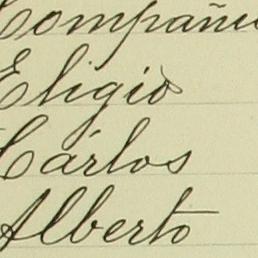 Compañia
Eligio
Cárlos
Alberto